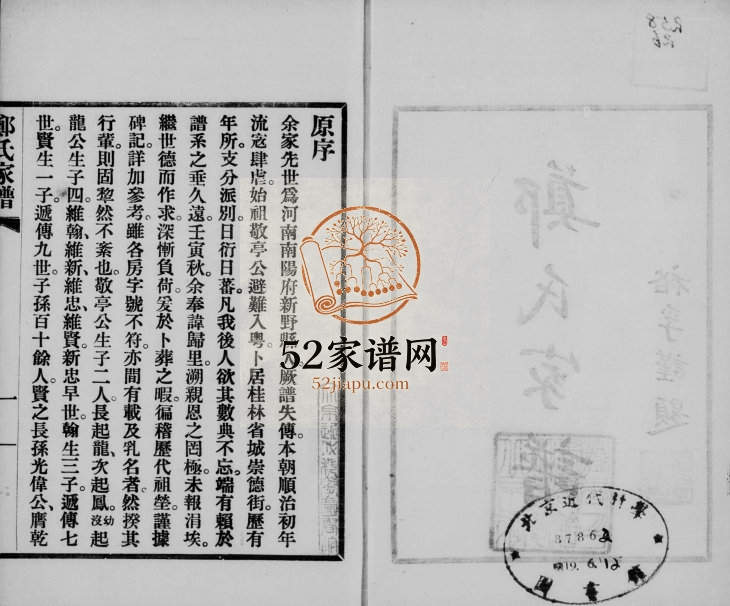 R58
226
鄭氏家譜
謹題
北京近代科學
87862
19. 6.12
圖書館
原序
余家先世爲河南南陽府新野縣人厥譜失傳本朝順治初年
流寇肆虐。始祖敬亭公避難入粵。卜居桂林省城崇德街。歷有
年所。支分派別。日衍日蕃。凡我後人欲其數典不忘。端有賴於
譜系之垂久遠。壬寅秋。余奉諱歸里。溯親恩之罔極。未報涓埃。
繼世德而作求。深慚負荷。爰於卜葬之暇。徧稽歷代祖塋。謹據
碑記。詳加參考。雖各房字號不符。亦間有載及乳名者。然揆其
行輩則固犂然不紊也。敬亭公生子二人。長起龍。次起鳳。幼沒起
龍公生子四。維翰、維新、維忠、維賢。新忠早世。翰生三子。遞傳七
世。賢生一子。遞傳九世。子孫百十餘人。賢之長孫光偉公、膺乾
鄭氏家譜
一
52家谱网
52jiapu.com